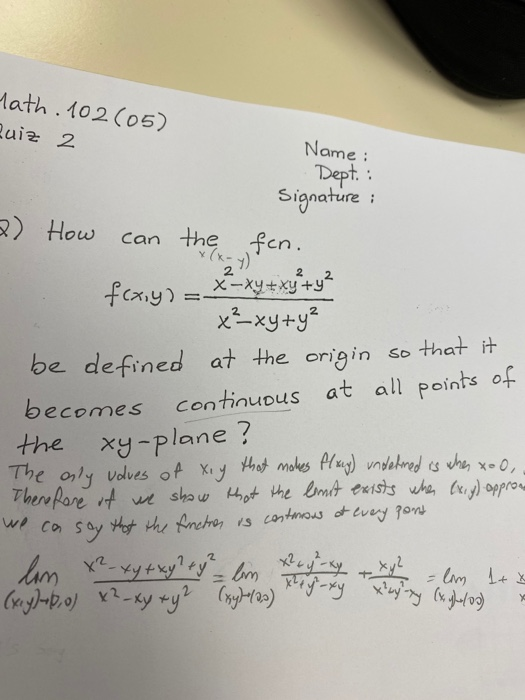 Math. 102 (05)
Quiz 2
Name :
Dept. :
Signature :
Q) How can the fcn.
x(x-y)
f(x,y) = (x²-xy+xy²+y²)/(x²-xy+y²)
be defined at the origin so that it
becomes continuous at all points of
the xy-plane?
The only values of x,y that makes f(x,y) undefined is when x=0,
Therefore if we show that the limit exists when (x,y) approa
we can say that the function is continuous at every point
lim (x,y)→(0,0) (x²-xy+xy²+y²)/(x²-xy+y²) = lim (x,y)→(0,0) (x²+y²-xy)/(x²+y²-xy) + (xy²)/(x²+y²-xy) = lim (x,y)→(0,0) 1+ x